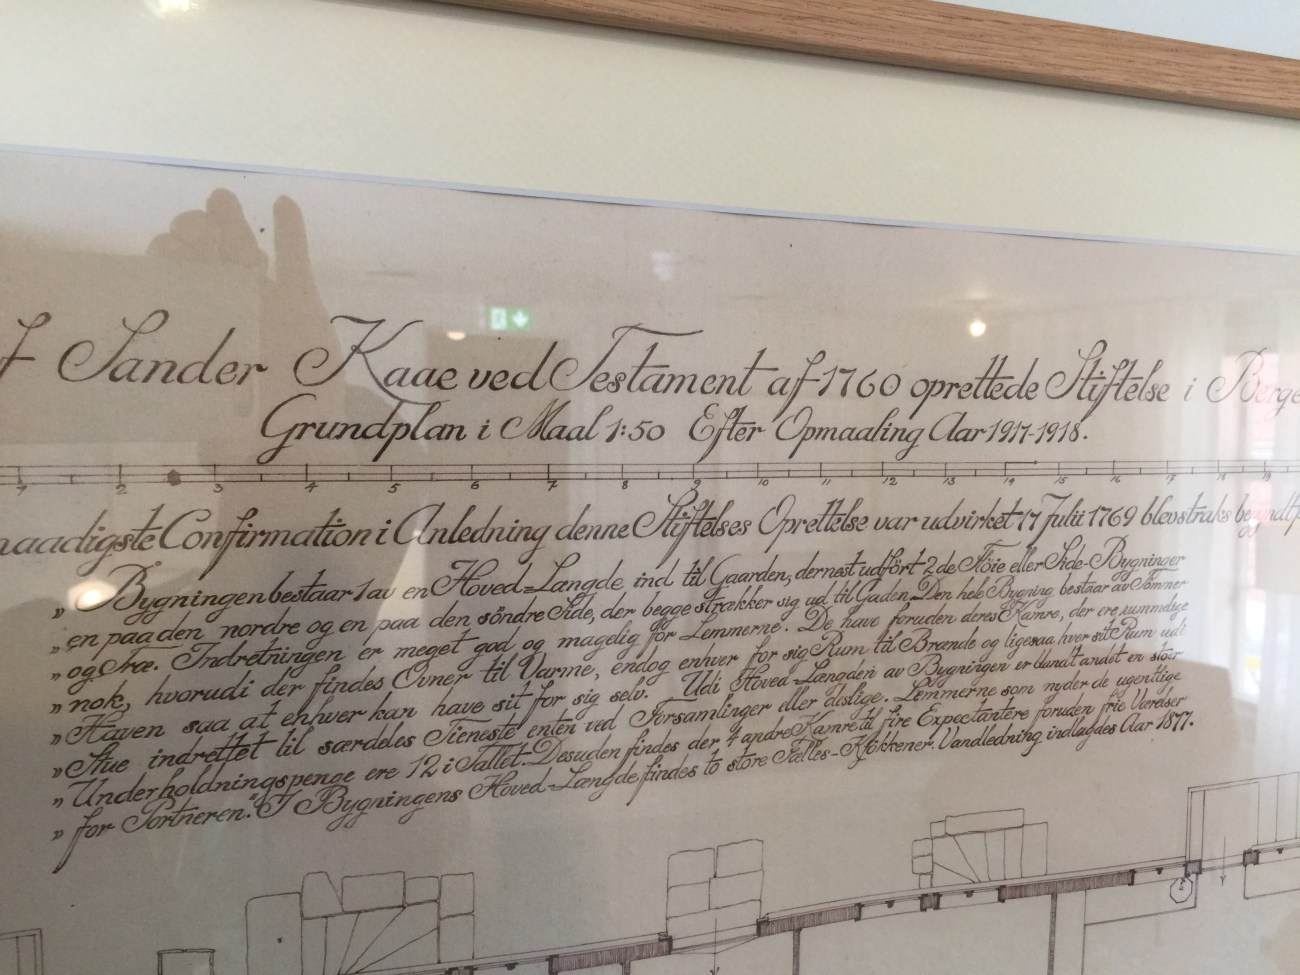 f Sander Kaae ved Testament af 1760 oprettede Stiftelse i Berge
Grundplan i Maal 1:50 Efter Opmaaling Aar 1917-1918.
1 2 3 4 5 6 7 8 9 10 11 12 13 14 15 16 17 18 19
naadigste Confirmation i Anledning denne Stiftelses Oprettelse var udvirket 17 Julii 1769 blev straks begyndt
„ Bygningen bestaar 1 av en Hoved-Længde ind til Gaarden, dernest udført 2de Fløie eller Side-Bygninger
„ en paa den nordre og en paa den söndre Side, der begge strækker sig ud til Gaden. Den hele Bygning bestaar av Tömmer
„ og Træ. Indretningen er meget god og magelig for Lemmerne. De have foruden deres Kamre, der ere rummelige
„ nok, hvorudi der findes Ovner til Varme, endog enhver for sig Rum til Brænde og ligesaa hver sit Rum udi
„ Haven saa at enhver kan have sit for sig selv. Udi Hoved-Længden av Bygningen er blandt andet en stor
„ Stue indrettet til særdeles Tieneste enten ved Forsamlinger eller deslige. Lemmerne som nyder de ugentlige
„ Underholdningspenge ere 12 i Tallet. Desuden findes der 4 andre Kamre til fire Expectantere foruden frie Værelser
„ for Portneren." I Bygningens Hoved-Længde findes to store Fælles-Kjøkkener. Vandledning indlagdes Aar 1877.